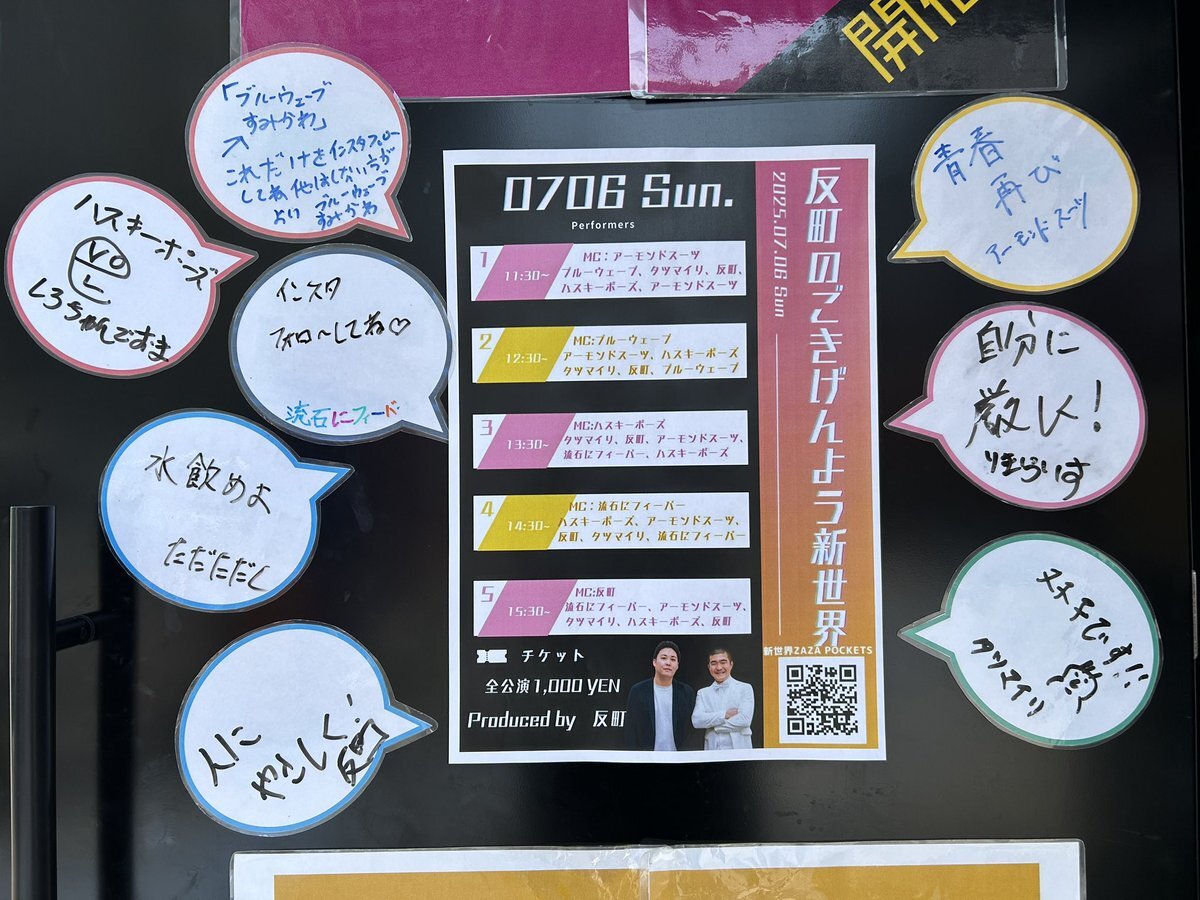 開催
「ブルーウェーブ
すみかわ」
これだけをインスタフォロー
して他はしないうが
よい ブルーウェーブ
すみかわ
ハスキーポーズ
しろちゃんですま
インスタ
フォローしてね♡
流石にフィーバー
水飲めよ
ただただし
人に
やさしく!
反町
0706 Sun.
Performers
1
11:30~
MC：アーモンドスーツ
ブルーウェーブ、タツマイリ、反町、
ハスキーポーズ、アーモンドスーツ
2
12:30~
MC:ブルーウェーブ
アーモンドスーツ、ハスキーポーズ
タツマイリ、反町、ブルーウェーブ
3
13:30~
MC:ハスキーポーズ
タツマイリ、反町、アーモンドスーツ、
流石にフィーバー、ハスキーポーズ
4
14:30~
MC：流石にフィーバー
ハスキーポーズ、アーモンドスーツ、
反町、タツマイリ、流石にフィーバー
5
15:30~
MC:反町
流石にフィーバー、アーモンドスーツ、
タツマイリ、ハスキーポーズ、反町
チケット
全公演1,000 YEN
Produced by 反町
反町のごきげんよう新世界
2025.07.06 Sun
新世界ZAZA POCKETS
青春
再び
アーモンドスーツ
自分に
厳しく!
ヌメチです!!
タツマイリ